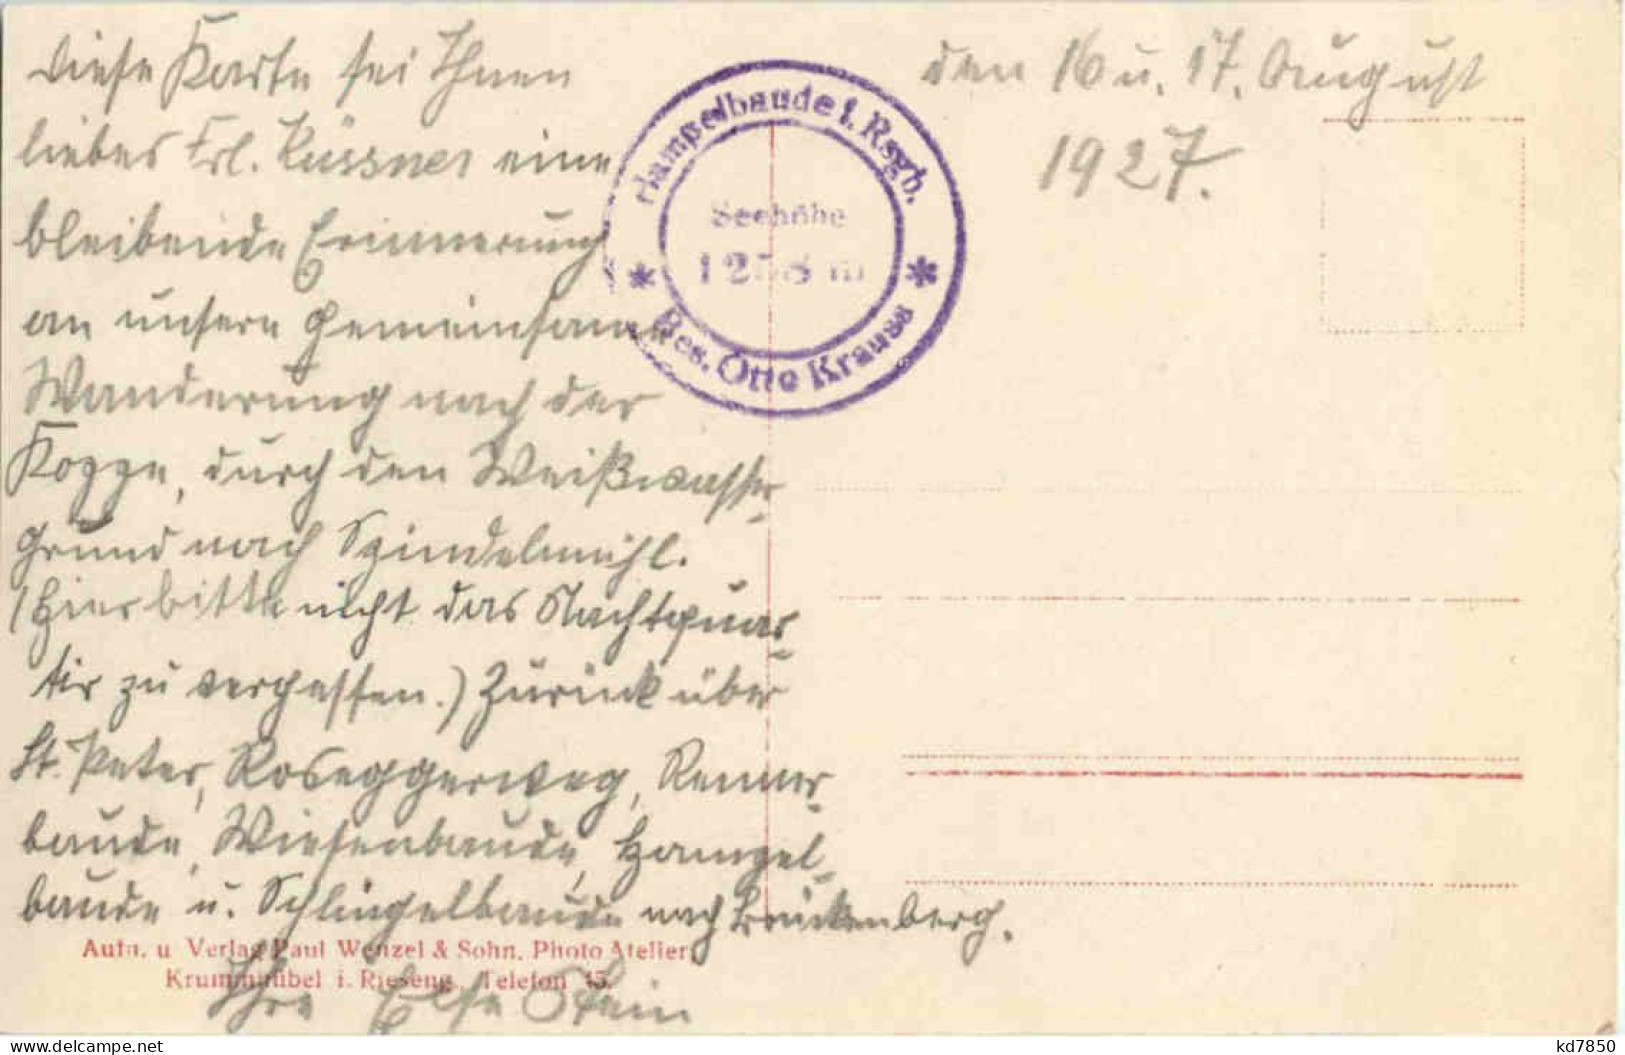 Diese Karte sei Ihnen
liebes Frl. Küssner eine
bleibende Erinnerung
an unsere gemeinsame
Wanderung nach der
Koppe, durch den Weißwasser-
grund nach Spindelmühl.
(Hier bitte nicht das Nachtquar-
tir zu vergessen.) Zurück über
St. Peter, Roseggerweg, Renner-
baude, Wiesenbaude, Hampel-
baude u. Schlingelbaude nach Brückenberg.
Ihre Else Stein
den 16 u. 17. August
1927.
Hampelbaude i. Rsgb.
Seehöhe
1258 m
* Bes. Otto Krauss *
Aufn. u Verlag Paul Wenzel & Sohn, Photo Atelier,
Krummhübel i. Rieseng., Telefon 45.
kd7850
www.delcampe.net